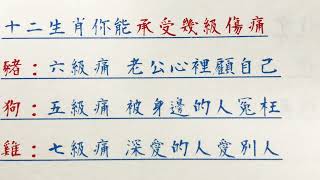 十二生肖你能承受幾級傷痛
豬：六級痛 老公心裡顧自己
狗：五級痛 被身邊的人冤枉
雞：七級痛 深愛的人愛別人